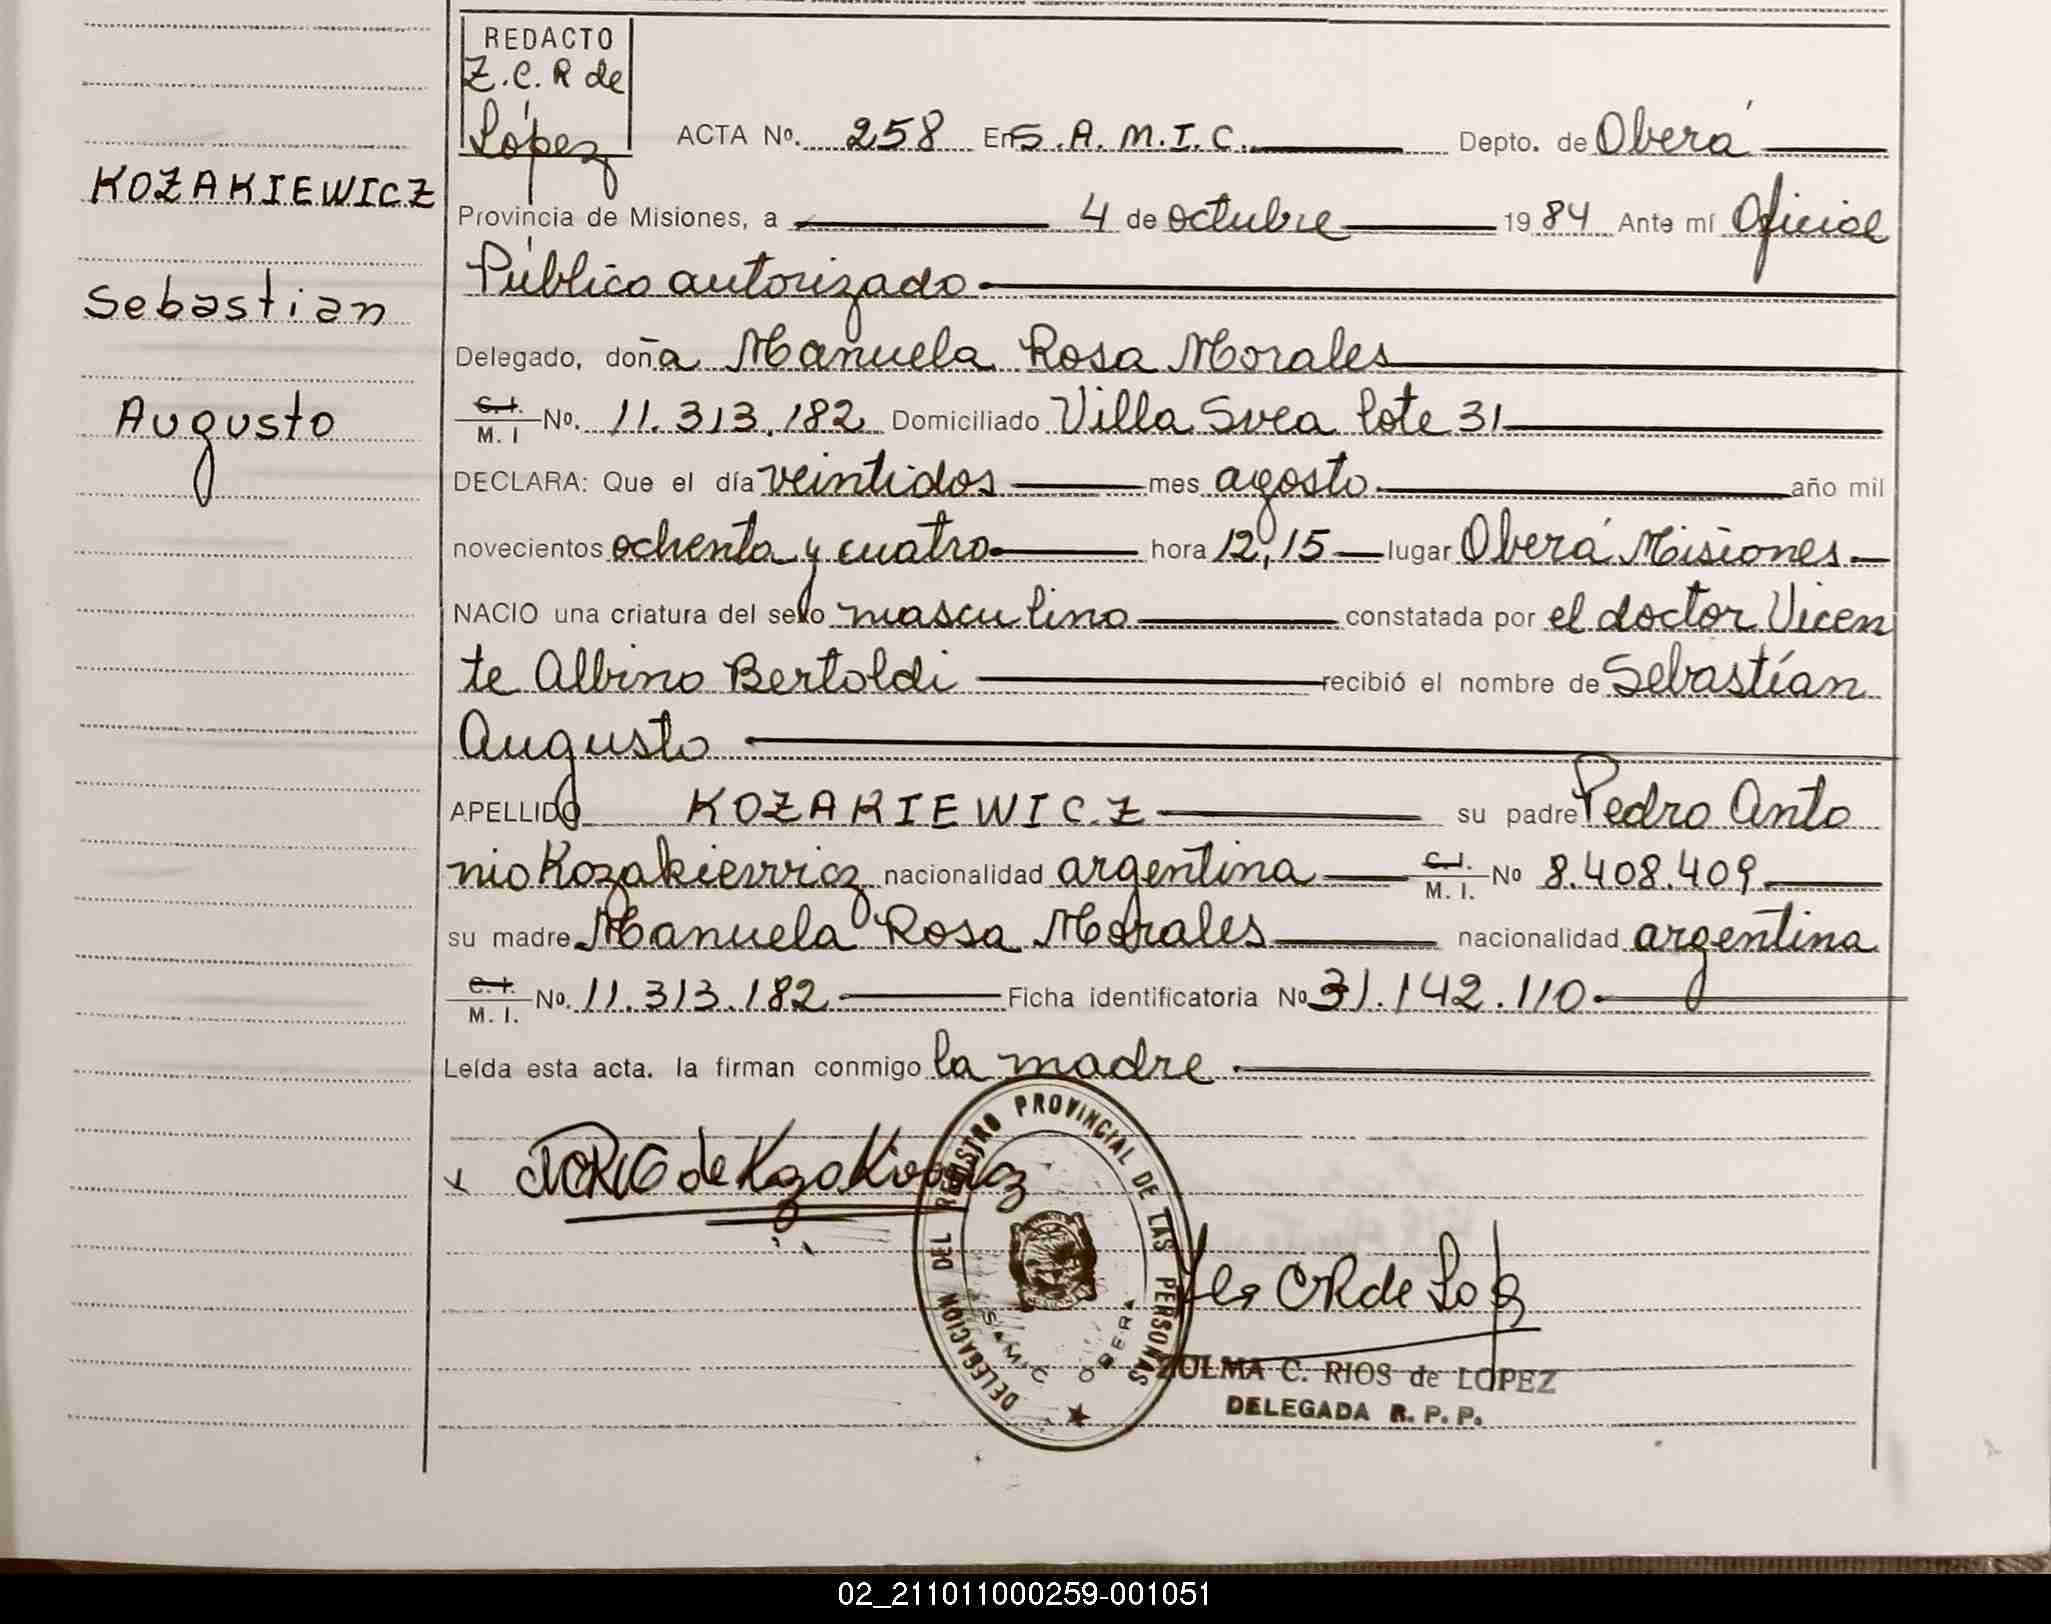 REDACTO
Z.C.R de
López
ACTA No. 258 En S.A.M.I.C. Depto. de Oberá
KOZAKIEWICZ
Provincia de Misiones, a 4 de octubre 1984 Ante mí Oficial
Público autorizado
Sebastian
Delegado, doña Manuela Rosa Morales
Augusto
C.I. M. I No. 11.313.182 Domiciliado Villa Svea lote 31
DECLARA: Que el día veintidos mes agosto año mil
novecientos ochenta y cuatro hora 12,15 lugar Oberá Misiones
NACIO una criatura del sexo masculino constatada por el doctor Vicen
te Albino Bertoldi recibió el nombre de Sebastían
Augusto
APELLIDO KOZAKIEWICZ su padre Pedro Anto
nio Kozakiewicz nacionalidad argentina C.I. M. I. No 8.408.409
su madre Manuela Rosa Morales nacionalidad argentina
C.I. M. I. No. 11.313.182 Ficha identificatoria No 31.142.110
Leída esta acta. la firman conmigo la madre
de Kozakiewicz
DELEGACION DEL REGISTRO PROVINCIAL DE LAS PERSONAS
S.A.M.I.C. OBERA
CR de
ZULMA C. RIOS de LOPEZ
DELEGADA R. P. P.
02_211011000259-001051